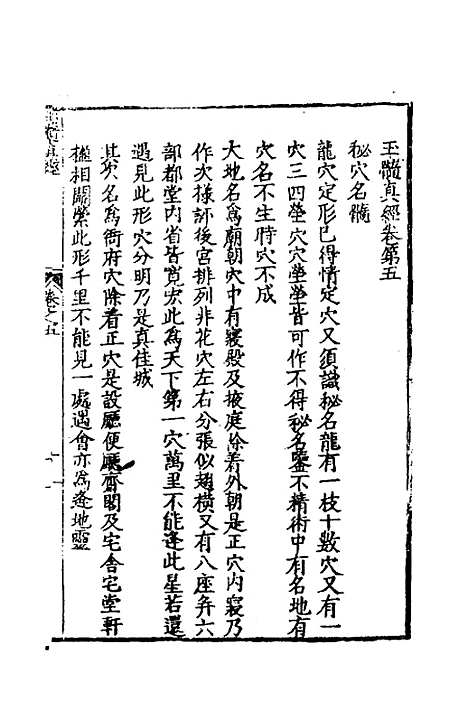 玉髓真經卷第五
秘穴名髓
龍穴定形已得情定穴又須識秘名龍有一枝十數穴又有一
穴三四塋穴穴塋塋皆可作不得秘名鑒不精術中有名地有
穴名不生時穴不成
大地名爲廟朝穴中有寢殿及掖庭除着外朝是正穴内寢乃
作次様評後宮排列非花穴左右分張似翅横又有八座弁六
部都堂内省皆寬宏此爲天下第一穴萬里不能逢此星若還
遇見此形穴分明乃是真佳城
其次名爲衙府穴除着正穴是設廳便廳齋閣及宅舎宅堂軒
檻相關縈此形千里不能見一處遇會亦爲逢地靈
卷之五